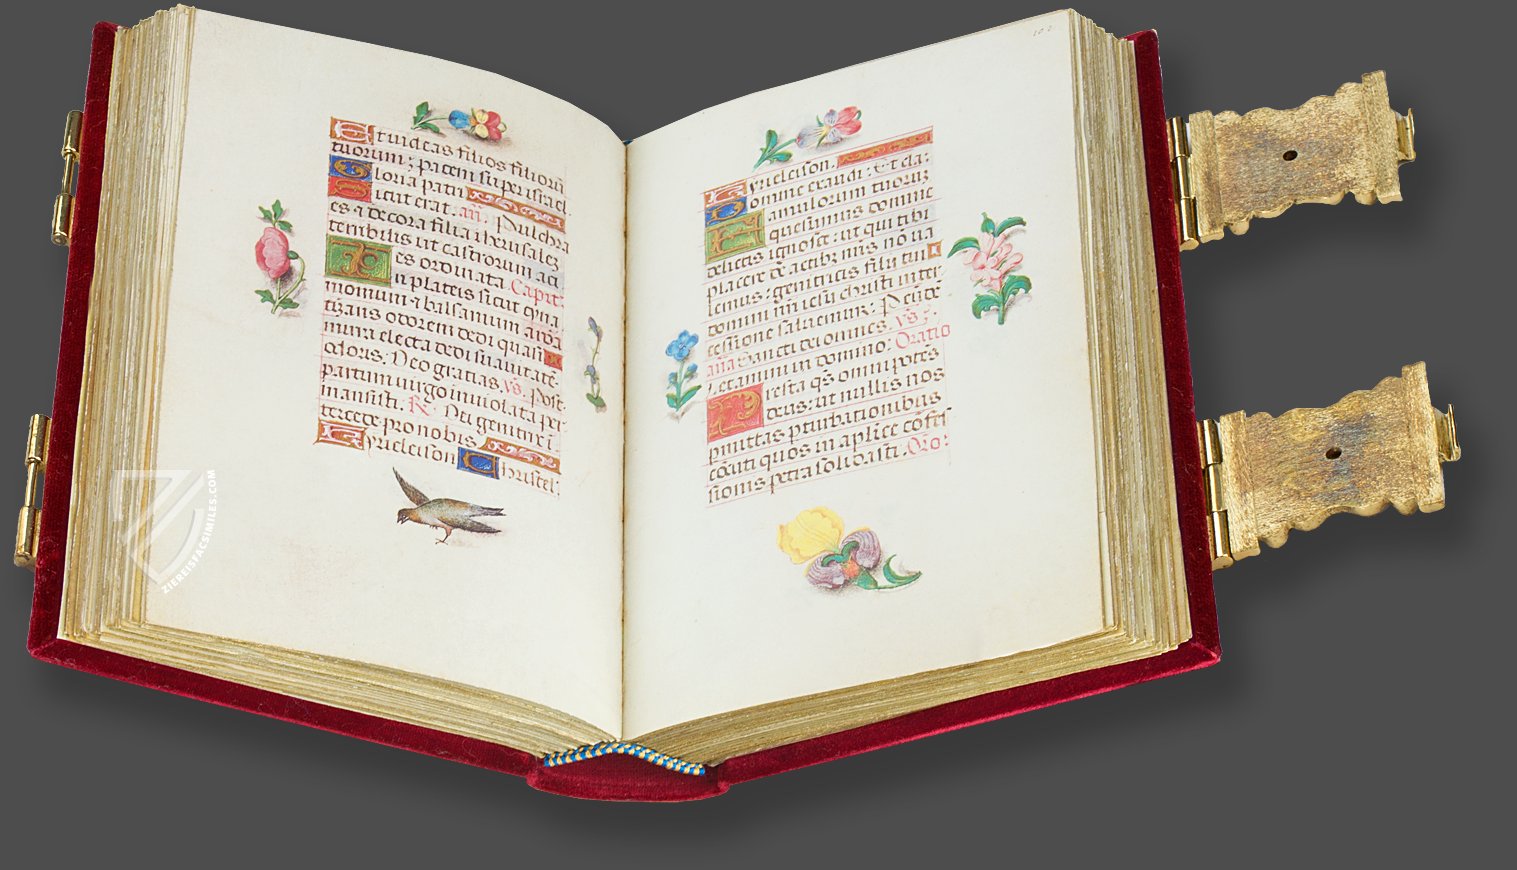 Et videas filios filioru
tuorum: pacem super israel.
Gloria patri
Sicut erat. an. Pulchra
es & decora filia iherusalez
terribilis ut castrorum aci
es ordinata. Capit.
In plateis sicut cyna
momum & balsamum aroma
tizans odorem dedi quasi
mirra electa dedi suavitate
odoris. Deo gratias. vs. Post
partum virgo inviolata per
mansisti. R. Dei genitrix i
tercede pro nobis
Kyrieleison Christel:
102
Kyrieleison.
Domine exaudi: & t cla:
Famulorum tuorum
quesumus domine
delictis ignosce: ut qui tibi
placere de actibz nris no va
lemus: genitricis filii tui
domini nri iesu christi inter
cessione salvemur: Per eude
ana Sancti dei omnes. vs.
Letamini in domino: Oratio
Presta qs omnipotes
deus: ut nullis nos
pmittas pturbationibus
cocuti quos in aplice cofes
sionis petra solidasti. Oro:
ZIEREISFACSIMILES.COM